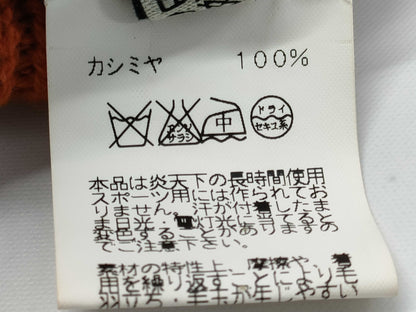 カシミヤ 100%
エンソ
サラシ
中
ドライ
セキユ系
本品は炎天下の長時間使用
スポーツ用には作られてお
りません。汗が付着したま
ま日光・電灯光に当てると
変色することがありますの
でご注意下さい。
素材の特性上、摩擦や、着
用を繰り返すことにより毛
羽立ち・毛玉が生じやすい